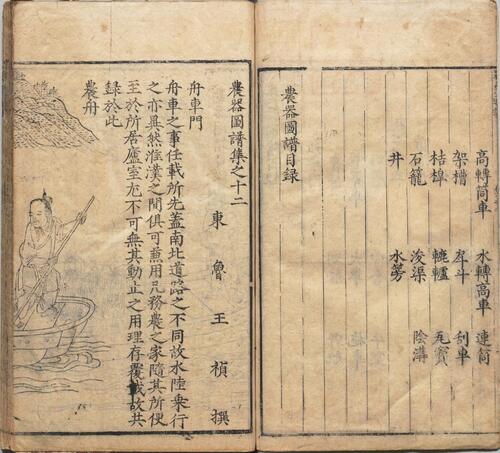 高轉筒車　水轉高車　連筒
架槽　戽斗　刮車
桔槔　轆轤　瓦竇
石籠　浚渠　陰溝
井　水篣
農器圖譜目録
農器圖譜集之十二
東魯王禎撰
舟車門
舟車之事任載所先蓋南北道路之不同故水陸乗行
之亦異然淮漢之間俱可兼用凡務農之家隨其所便
至於所居廬室尤不可無其動止之用理存覆載故共
録於此
農舟